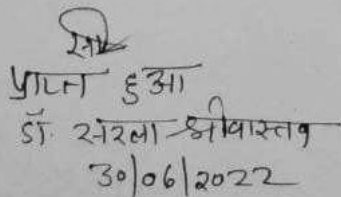 प्राप्त हुआ
डॉ. सरला श्रीवास्तव
30/06/2022